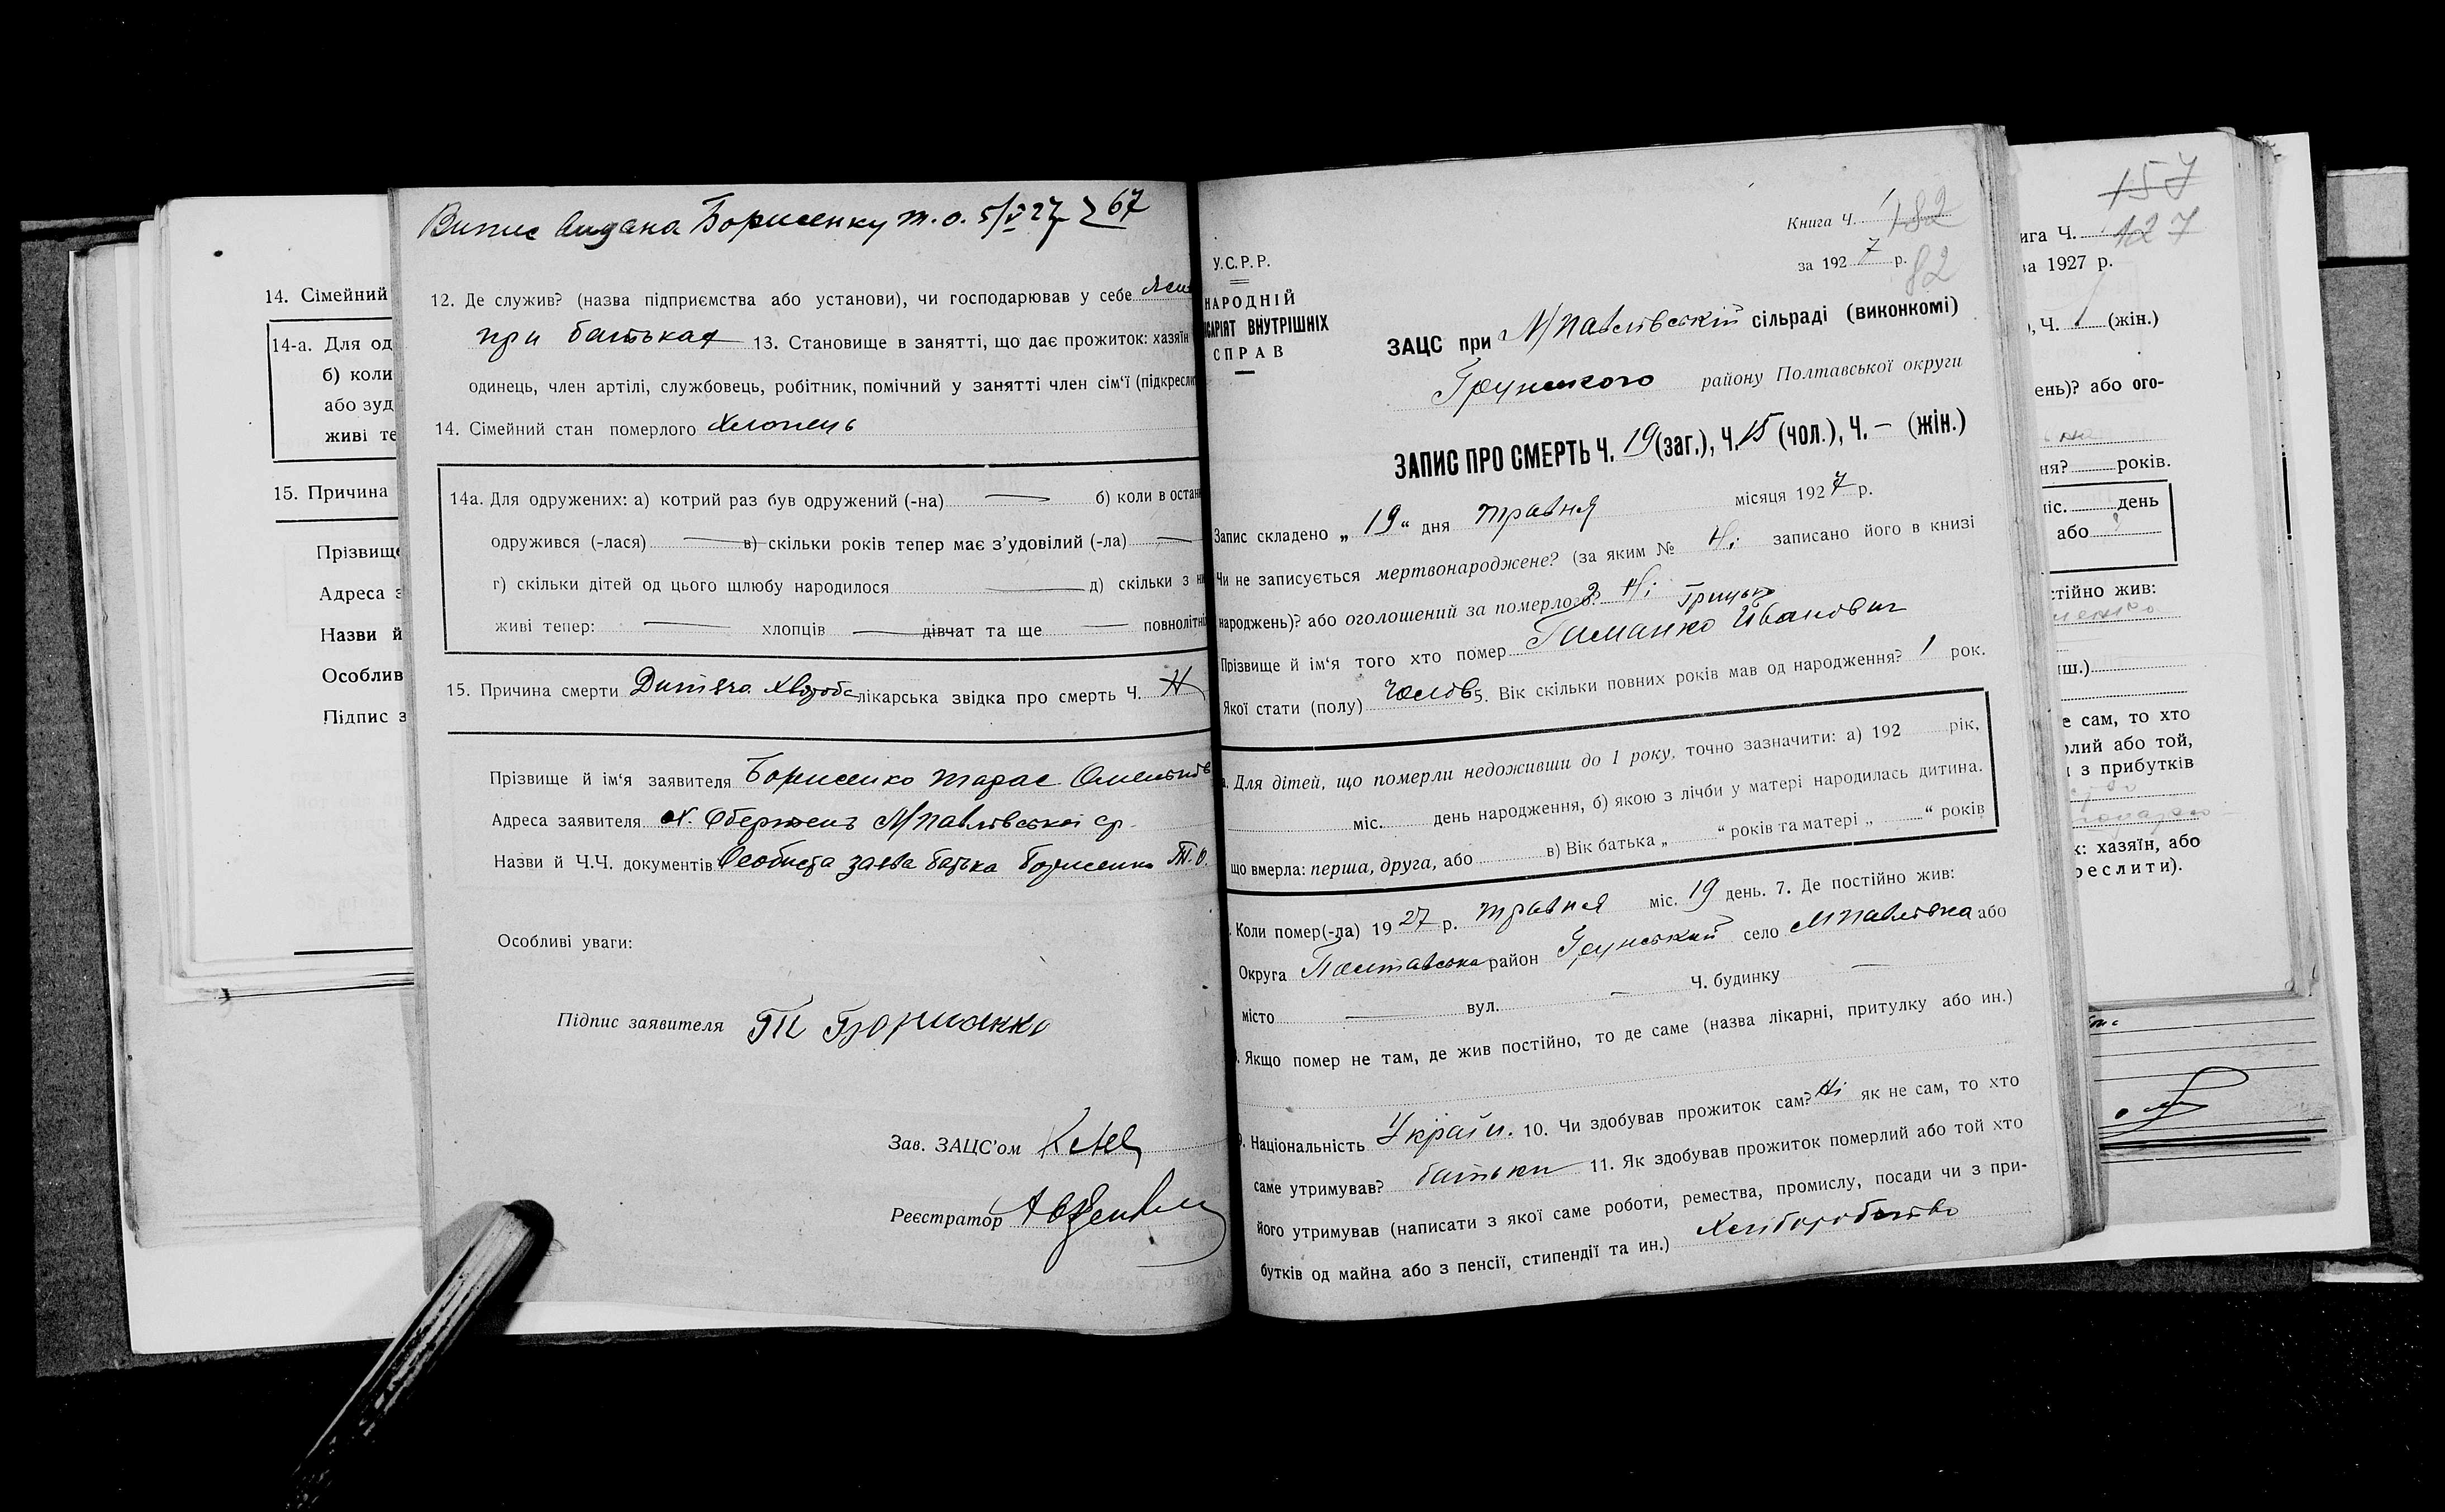 14. Сімейний
14-а. Для од
б) коли
або зуд
живі те
15. Причина
Прізвище
Адреса з
Назви й
Особлив
Підпис з
Випис видана Борисенку Т. О. 5/V 27 67
12. Де служив? (назва підприємства або установи), чи господарював у себе
при батьках 13. Становище в занятті, що дає прожиток: хазяїн
одинець, член артілі, службовець, робітник, помічний у занятті член сім‘ї (підкресли
14. Сімейний стан померлого Хлопець
14а. Для одружених: а) котрий раз був одружений (-на) — б) коли в остан
одружився (-лася) — в) скільки років тепер має з’удовілий (-ла) —
г) скільки дітей од цього шлюбу народилося — д) скільки з ни
живі тепер: — хлопців — дівчат та ще — повнолітні
15. Причина смерти Дитяча хвороба лікарська звідка про смерть Ч. Н
Прізвище й ім‘я заявителя Борисенко Тарас
Адреса заявителя х. М/Павлівської ср.
Назви й Ч.Ч. документів Особиста заява батька Борисенка Т. О.
Особливі уваги:
Підпис заявителя Борисенко
Зав. ЗАЦС’ом
Реєстратор
Книга Ч. 1 182
за 192 7 р. 82
У.С.Р.Р.
НАРОДНІЙ
САРІЯТ ВНУТРІШНІХ
СПРАВ
ЗАЦС при М/Павлівській сільраді (виконкомі)
Грунського району Полтавської округи
ЗАПИС ПРО СМЕРТЬ Ч. 19 (заг.), Ч. 15 (чол.), Ч. — (жін.)
Запис складено „ 19 “ дня травня місяця 192 7 р.
Чи не записується мертвонароджене? (за яким № Ні записано його в книзі
народжень)? або оголошений за померлого? Ні
Грицько
Прізвище й ім‘я того хто помер Іванович
Якої стати (полу) чолов 5. Вік скільки повних років мав од народження? 1 рок.
а. Для дітей, що померли недоживши до 1 року, точно зазначити: а) 192 рік,
міс. день народження, б) якою з лічби у матері народилась дитина.
що вмерла: перша, друга, або в) Вік батька „ “ років та матері „ “ років
Коли помер(-ла) 19 27 р. травня міс. 19 день. 7. Де постійно жив:
Округа Полтавська район Грунський село М/Павлівка або
місто — вул. — Ч. будинку —
. Якщо помер не там, де жив постійно, то де саме (назва лікарні, притулку або ин.)
9. Національність Україн. 10. Чи здобував прожиток сам? Ні як не сам, то хто
саме утримував? батьки 11. Як здобував прожиток померлий або той хто
його утримував (написати з якої саме роботи, ремества, промислу, посади чи з при-
бутків од майна або з пенсії, стипендії та ин.) Хліборобство
157
ига Ч. 127
за 1927 р.
), Ч. 1 (жін.)
ень)? або ого-
ня? років.
міс. день
або
стійно жив:
иш.)
е сам, то хто
рлий або той,
и з прибутків
к: хазяїн, або
реслити).